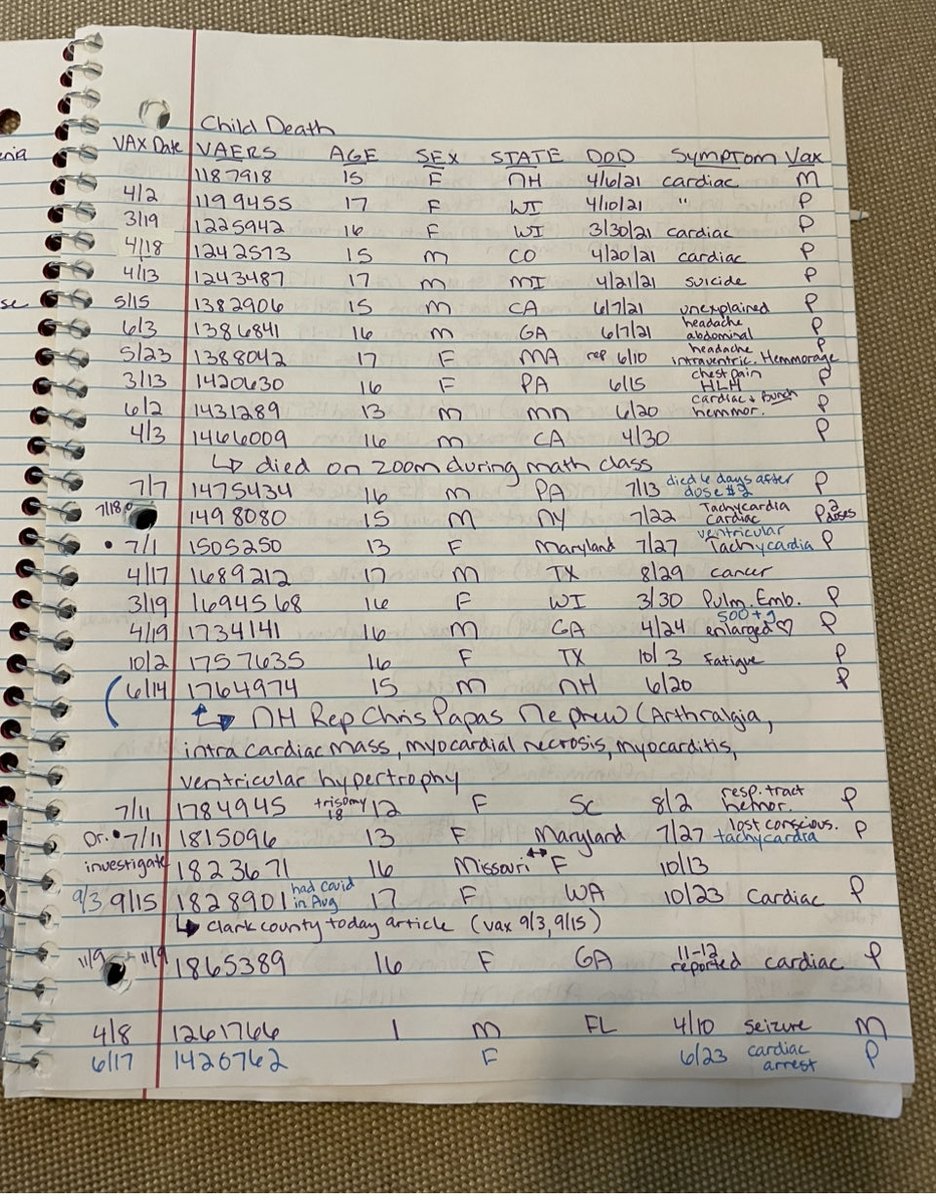 Child Death
VAX Date VAERS AGE SEX STATE DOD Symptom Vax
1187918 15 F NH 4/6/21 cardiac M
4/2 1199455 17 F WI 4/10/21 " P
3/19 1225942 16 F WI 3/30/21 cardiac P
4/18 1242573 15 M CO 4/20/21 cardiac P
4/13 1243487 17 M MI 4/21/21 suicide P
5/15 1382906 15 M CA 6/7/21 unexplained P
6/3 1386841 16 M GA 6/7/21 headache abdominal P
5/23 1388042 17 F MA rep 6/10 headache intraventric. Hemmorage P
3/13 1420630 16 F PA 6/15 chest pain HLH P
6/2 1431289 13 M MN 6/20 cardiac + bunch hemmor. P
4/3 1466009 16 M CA 4/30 P
↳ died on zoom during math class
7/7 1475434 16 M PA 7/13 died 6 days after dose #2 P
7/18 1498080 15 M NY 7/22 Tachycardia cardiac P 2 doses
• 7/1 1505250 13 F Maryland 7/27 ventricular Tachycardia P
4/17 1689212 17 M TX 8/29 cancer
3/19 1694568 16 F WI 3/30 Pulm. Emb. P
4/19 1734141 16 M GA 4/24 500+g enlarged ♡ P
10/2 1757635 16 F TX 10/3 Fatigue P
6/14 1764974 15 M NH 6/20 P
↳ NH Rep Chris Papas Nephew (Arthralgia,
intra cardiac mass, myocardial necrosis, myocarditis,
ventricular hypertrophy
7/11 1784945 trisomy 18 12 F SC 8/2 resp. tract hemor. P
Or. • 7/11 1815096 13 F Maryland 7/27 lost conscious. tachycardia P
investigate 1823671 16 Missouri ↔ F 10/13
9/3 9/15 1828901 had covid in Aug 17 F WA 10/23 Cardiac P
↳ Clark county today article (vax 9/3, 9/15)
11/9 11/9 1865389 16 F GA 11-12 reported cardiac P
4/8 1261766 1 M FL 4/10 seizure M
6/17 1420762 F 6/23 cardiac arrest P